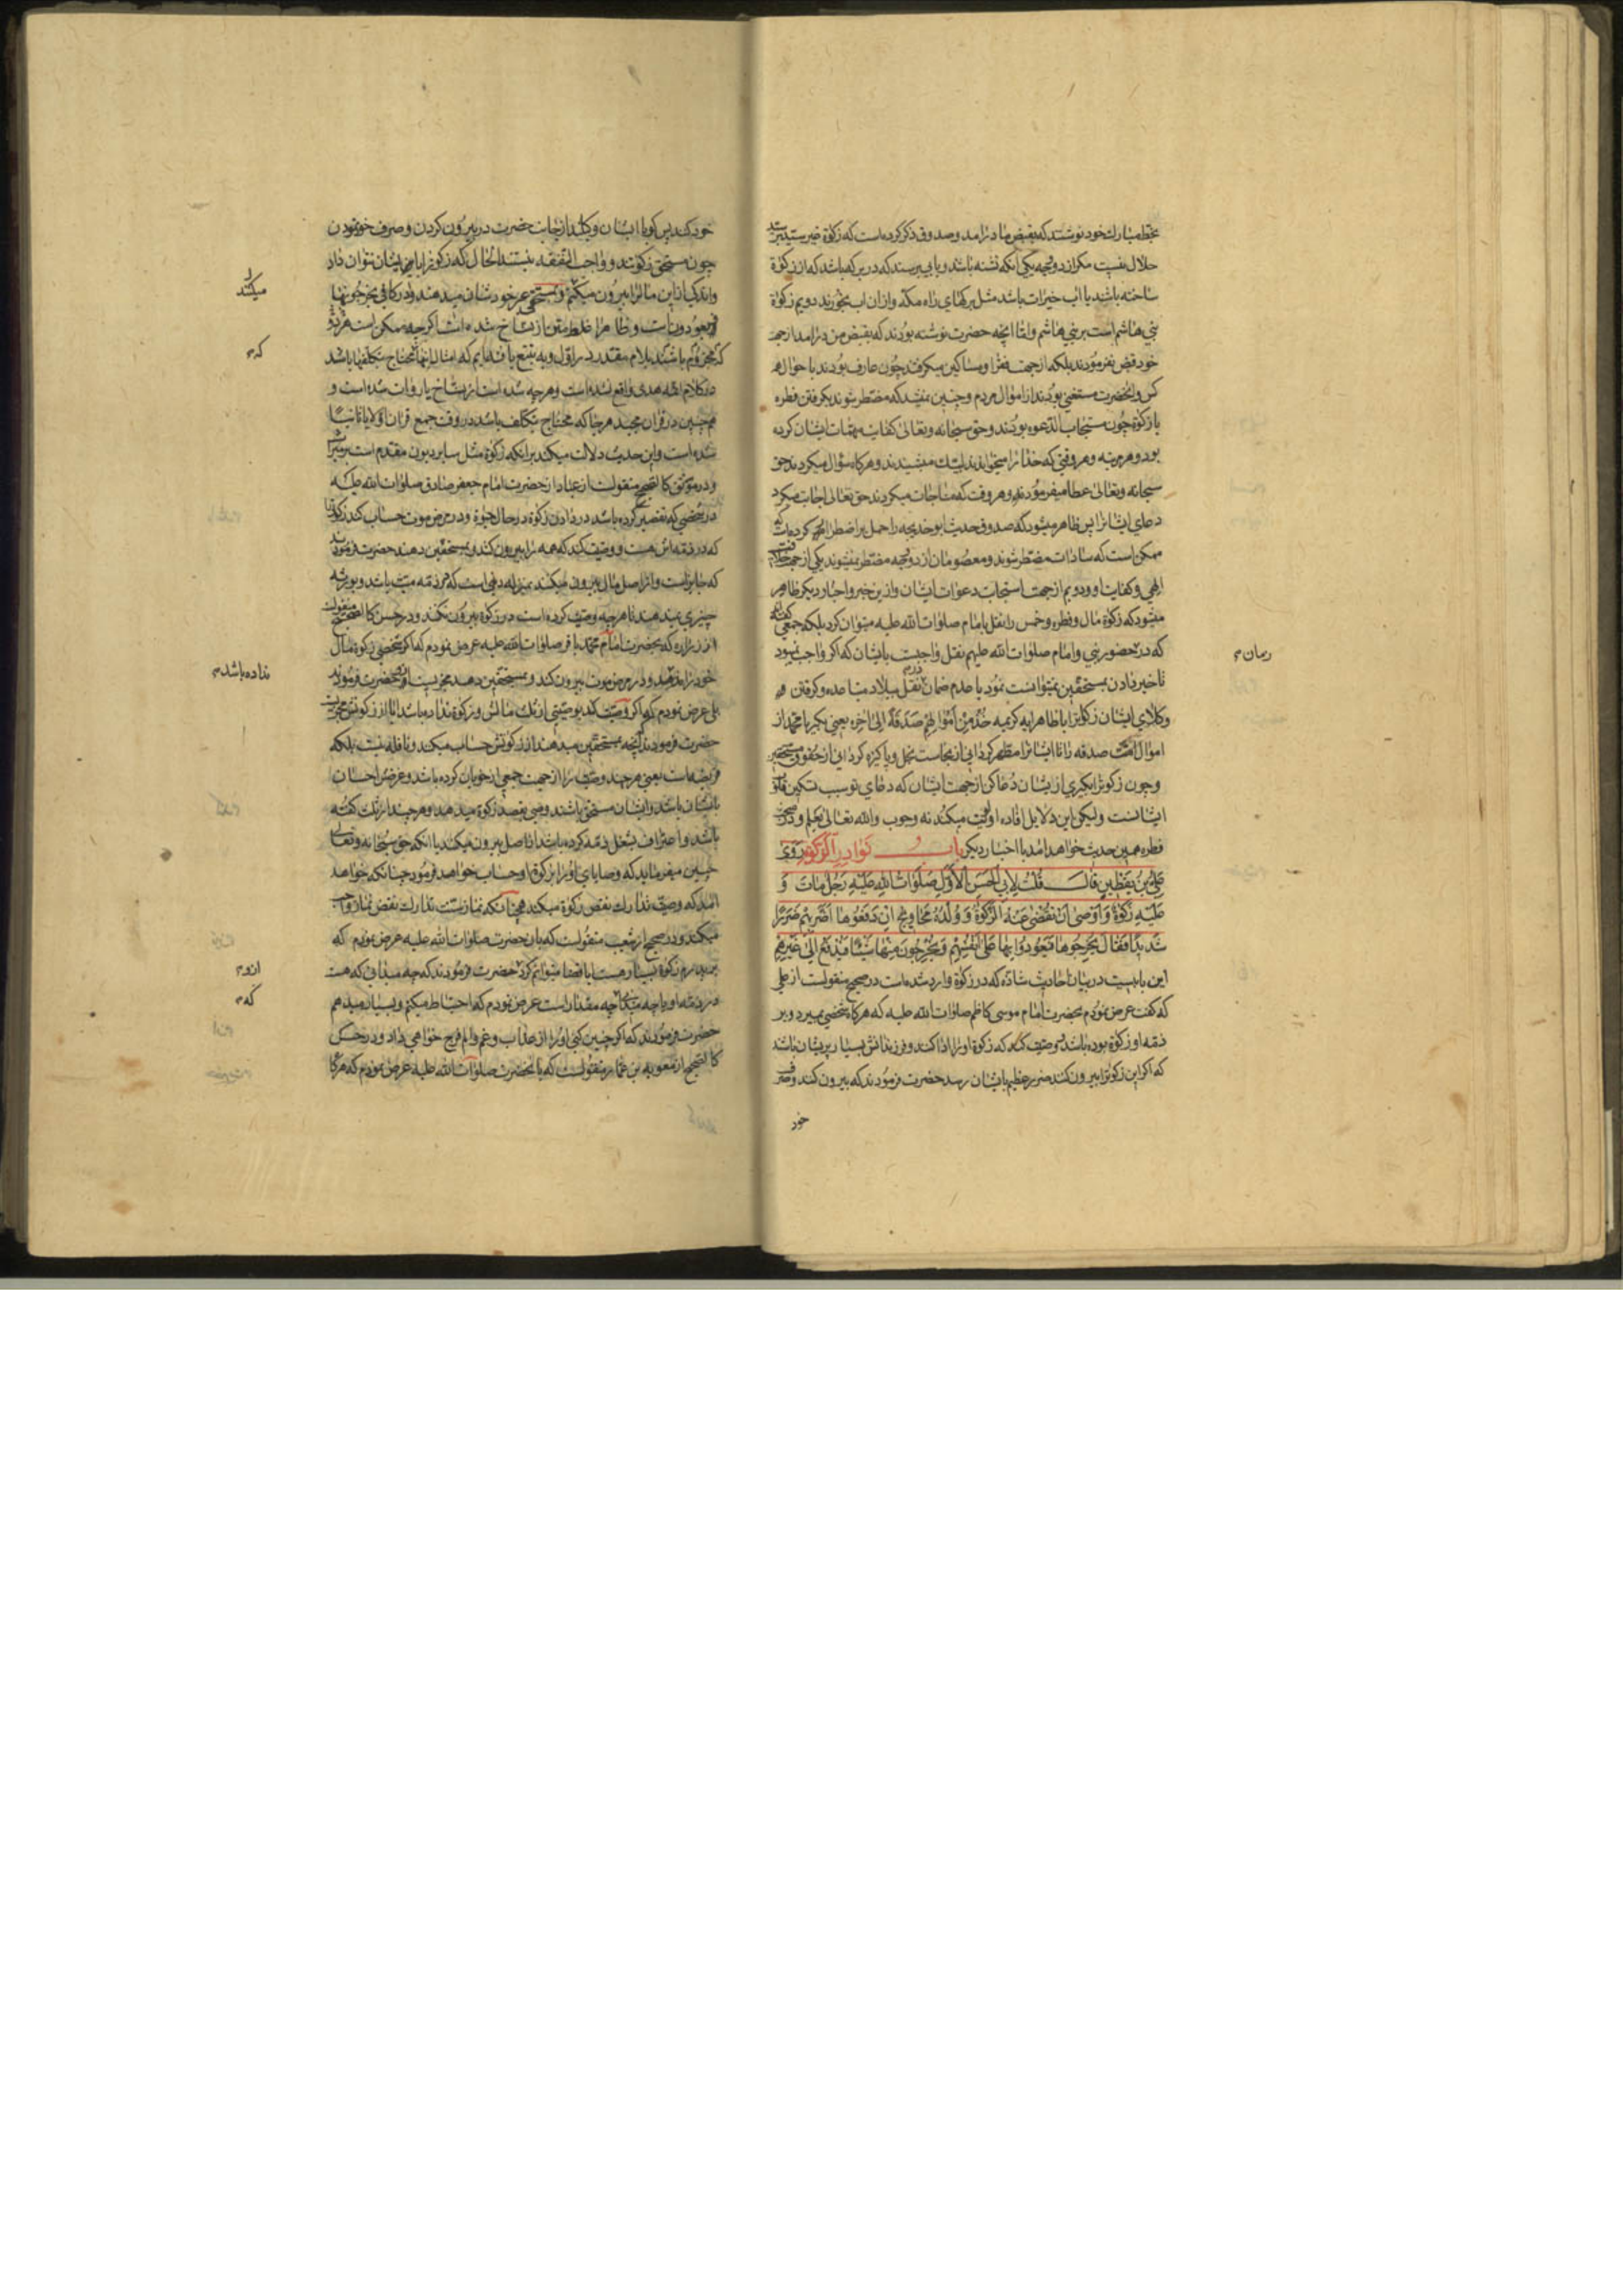 بخط مبارك خود نوشتند كه بقبض ما درامد و صدوق ذكر كرده است كه زكوة غير سيد بر سيد
حلال نيست مكر از دو جهه يكي انكه تشنه باشد و بابي برسند كه در بركه باشد كه از زكوة
ساخته باشند يا اب خيرات باشد مثل بركهاي راه مكه و ازان اب بخورند دويم زكوة
بني هاشم است بر بني هاشم و اما انچه حضرت نوشته بودند كه بقبض من درامد از جهة
خود قبض نفرمودند بلكه از جهت فقرا و مساكين ميكرفتند چون عارف بودند باحوال هر
كس و انحضرت مستغني بودند از اموال مردم و چنين نميشد كه مضطر شوند بكرفتن فطره
يا زكوة چون مستجاب الدعوه بودند و حق سبحانه و تعالى كفايت مهمات ايشان كرده
بود و هر مرتبه و هر وقتي كه خدا را ميخواندند لبيك ميشنيدند و هر كاه سؤال ميكردند حق
سبحانه و تعالى عطا ميفرمودند و هر وقت كه مناجات ميكردند حق تعالى اجابت ميكرد
دعاي ايشانرا پس ظاهر ميشود كه صدوق حديث ابو خديجه را حمل بر اضطرار كرده است
ممكن است كه سادات مضطر شوند و معصومان از دو جهه مضطر نميشوند يكي از جهت
الهي و كفايت او و دويم از جهت استجابت دعوات ايشان و از ين خبر و اخبار ديكر ظاهر
ميشود كه زكوة مال و فطره و خمس را نقل بامام صلوات الله عليه ميتوان كرد بلكه جمعي كفته اند
كه در حضور نبي و امام صلوات الله عليهم نقل واجبست بايشان كه اكر واجب نمي بود
تاخير دادن بمستحقين نميتوانست نمود با عدم ضمان نقل ببلاد متباعده و كرفتن
وكلاي ايشان زكوتها با ظاهر ايه كريمه خُذْ مِنْ اَمْوَالِهِمْ صَدَقَةً الى اخره يعني بكير يا محمد از
اموال امت صدقه را تا ايشانرا مطهر كرداني از نجاست بخل و پاكيزه كرداني از حقوق مستحقين
و چون زكوتها بكيري از يشان دعا كن از جهت ايشان كه دعاي تو سبب تسكين قلوب
ايشانست و ليكن اين دلايل افاده اولويت ميكند نه وجوب والله تعالى يعلم و در
فطره همين حديث خواهد امد با اخبار ديكر باب نَوَادِرِ الزَّكوةِ رَوٰى
عَلِيُّ بْنُ يَقْطِينٍ قَالَ قُلْتُ لِاَبِي الْحَسَنِ الْاَوَّلِ صَلَوَاتُ اللهِ عَلَيْهِ رَجُلٌ مَاتَ وَ
عَلَيْهِ زَكٰوةٌ وَ اَوْصٰى اَنْ تُقْضٰى عَنْهُ الزَّكٰوةُ وَ وُلْدُهُ مَحَاوِيجُ اِنْ دَفَعُوهَا اَضَرَّ بِهِمْ ضَرَرًا
شَدِيدًا فَقَالَ يُخْرِجُوهَا فَيَعُودُوا بِهَا عَلٰى اَنْفُسِهِمْ وَ يُخْرِجُونَ مِنْهَا شَيْئًا فَيُدْفَعُ اِلٰى غَيْرِهِمْ
اين بابيست در بيان احاديث شاذه كه در زكوة وارد شده است در صحيح منقولست از علي
كه كفت عرض نمودم بحضرت امام موسى كاظم صلوات الله عليه كه هركاه شخصي بميرد و بر
ذمه او زكوة بوده باشد و وصيت كند كه زكوة او را ادا كنند و فرزندانش بسيار پريشان باشند
كه اكر اين زكوترا بيرون كنند ضرر عظيم بايشان رسد حضرت فرمودند كه بيرون كنند و صرف
خود
خود كنند پس كويا ايشان وكيلند از جانب حضرت در بيرون كردن و صرف خود نمودن
چون مستحق زكوتند و واجب النفقه نيستند الحال كه زكوترا بايشان توان داد
و اندكي از اين مال را بيرون ميكنم و بمستحقي غير خودشان ميدهند و در كافي
و ظاهرا غلط متن از نساخ شده است اكر چه ممكن است
كه مجزوم باشند بلام مقدر در اول و به تتبع يافته ايم كه امثال اينها كه محتاج تكلفها باشد
در كلام ائمه هدى واقع نشده است و هر چه شده است از نساخ يا روات شده است و
همچنين در قران مجيد هر جا كه محتاج تكلف باشد در وقت جمع قران
شده است و اين حديث دلالت ميكند بر انكه زكوة مثل ساير ديون مقدم است بر ميراث
و در موثق كالصحيح منقولست از عباد از حضرت امام جعفر صادق صلوات الله عليه
در شخصي كه تقصير كرده باشد در دادن زكوة در حال حيوة و در مرض موت حساب كند زكوتها
كه در ذمه اش هست و وصيت كند كه همه را بيرون كنند و بمستحقين دهند حضرت فرمودند
كه جايز است و از اصل مال بيرون ميكنند بمنزله ديني است كه در ذمه ميت باشد و بورثه
چيزي نميدهند تا هر چه وصيت كرده است در زكوة بيرون نكنند و در حسن كالصحيح منقولست
از زراره كه بحضرت امام محمد باقر صلوات الله عليه عرض نمودم كه اكر شخصي زكوة مال
خود را ندهد و در مرض موت بيرون كند و بمستحقين دهد مجزيست حضرت فرمودند
بلي عرض نمودم كه اكر وصيت كند بوصيتي از ثلث مالش و زكوة نداده باشد ايا از زكوتش مجزيست
حضرت فرمودند انچه بمستحقين ميدهند از زكوتش حساب ميكنند و نافله نيست بلكه
فريضه است يعني هر چند وصيت را از جهت جمعي از خويشان كرده باشد و غرض احسان
بايشان باشد و ايشان مستحق باشند وصي بقصد زكوة ميدهد و هر چند از ثلث كفته
باشد و اعتراف بشغل ذمه كرده باشد از اصل بيرون ميكنند با انكه حق سبحانه و تعالى
چنين ميفرمايد كه وصاياي او را از زكوة او حساب خواهد فرمود چنانكه خواهد
امد كه وصيت تدارك نقص زكوة ميكند همچنانكه نماز سنت تدارك نقص نماز واجب
ميكند و در صحيح از شعيب منقولست كه بان حضرت صلوات الله عليه عرض نمودم كه
بر پدرم زكوة بسيار هست ايا قضا ميتوانم كرد حضرت فرمودند كه چه ميداني كه هست
در ذمه او يا چه ميداني چه مقدار است عرض نمودم كه احتياط ميكنم و بسيار ميدهم
حضرت فرمودند كه اكر چنين كني او را از عذاب و غم و الم فرج خواهي داد و در حسن
كالصحيح از معويه بن عمار منقولست كه بانحضرت صلوات الله عليه عرض نمودم كه هركاه
ميكنند
كه م
نداده باشد م
ازو م
كه م